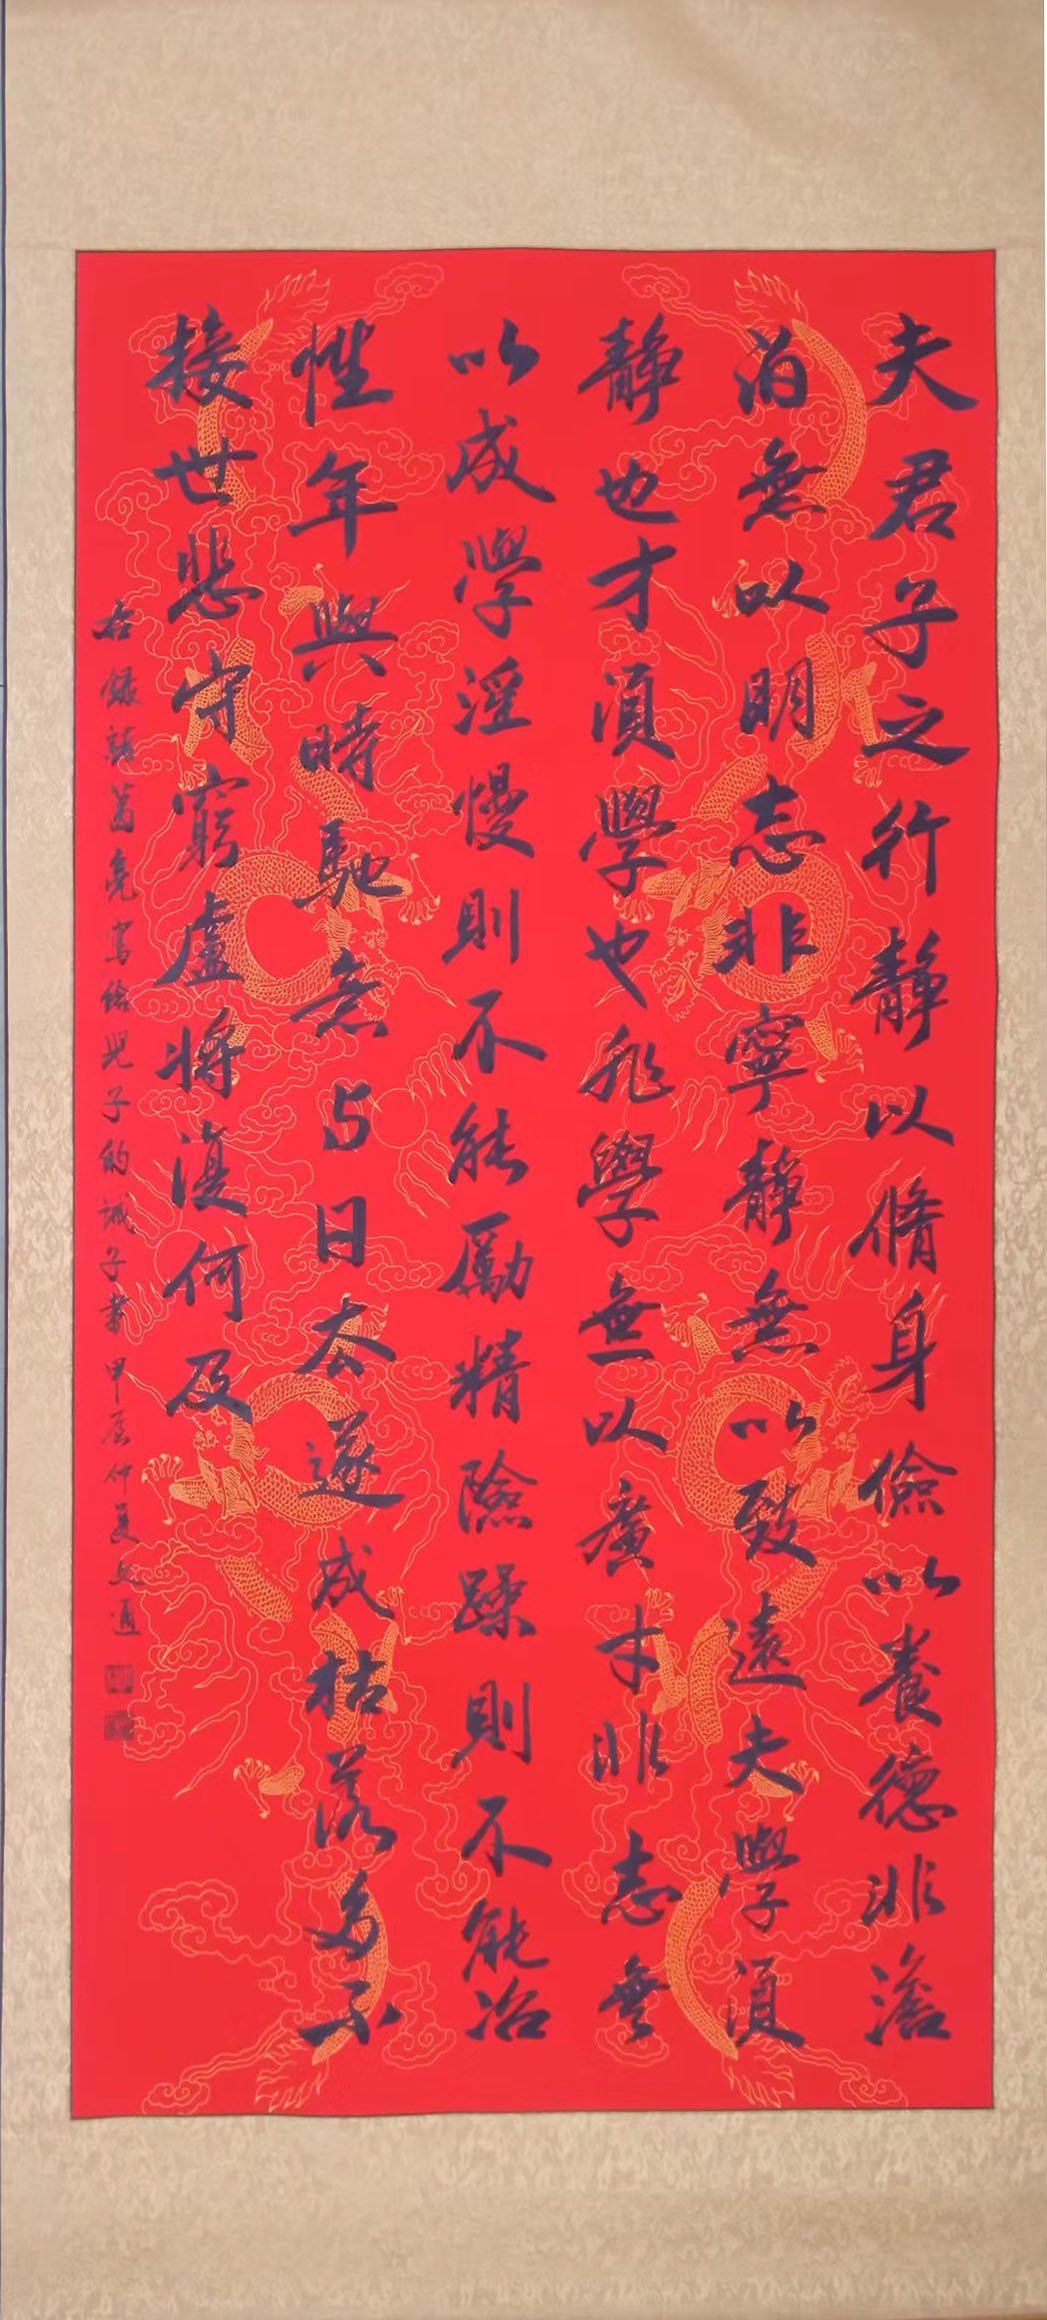 夫君子之行静以脩身儉以養德非澹
泊無以明志非寧静無以致遠夫學須
静也才須學也非學無以廣才非志無
以成學淫慢則不能勵精險躁則不能冶
性年與時馳意与日去遂成枯落多不
接世悲守窮盧將復何及
右録諸葛亮寫給兒子的誡子書 甲辰仲夏文通